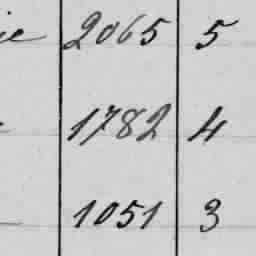 ie 2065 5
1782 4
1051 3